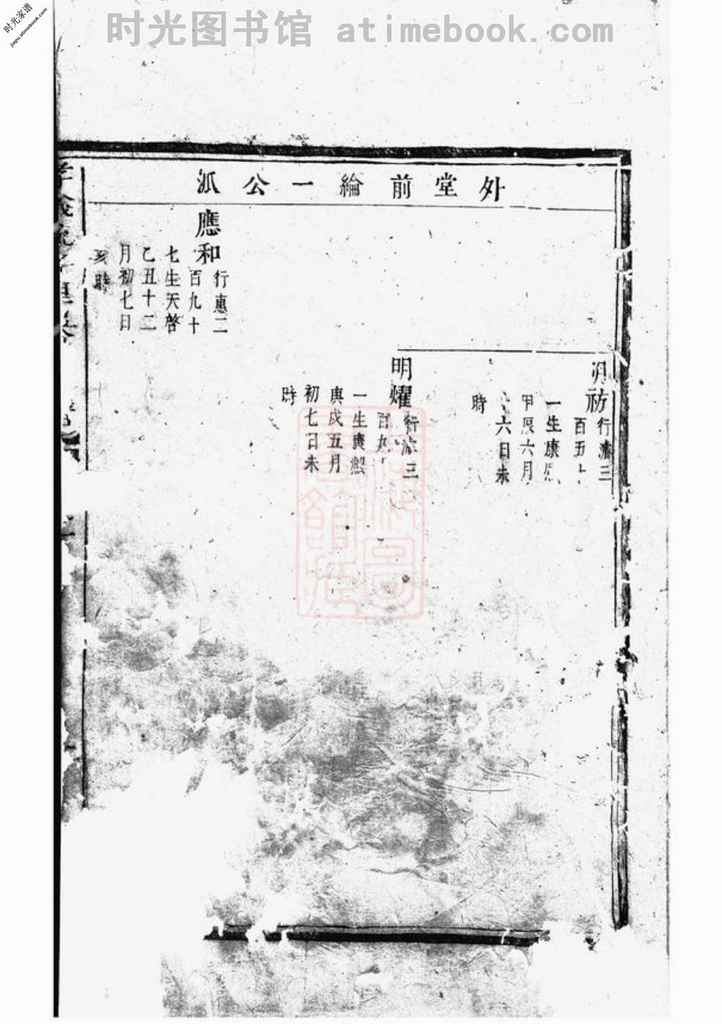 时光图书馆 atimebook.com
时光家谱
jiapu.atimebook.com
外堂前綸一公派
祊
行濟三
百五
一生康
甲辰六月
六日未
時
明燿
行濟三
百九
一生康熙
庚戌五月
初七日未
時
應和
行惠二
百九十
七生天啓
乙丑十二
月初七日
亥時